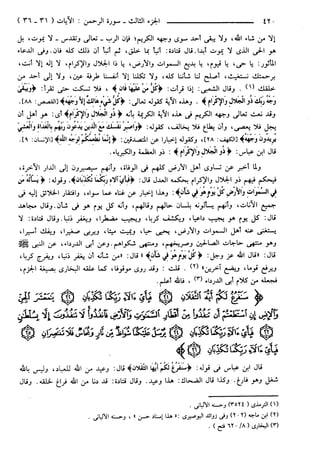 ٤٢٠ الجزء الثالث - سورة الرحمن : الآيات (٣١ - ٣٦)
إلا من شاء الله، ولا يبقى أحد سوى وجهه الكريم؛ فإن الرب - تعالى وتقدس - لا يموت، بل
هو الحي الذي لا يموت أبدا. قال قتادة: أنبأ بما خلق، ثم أنبأ أن ذلك كله فان. وفي الدعاء
المأثور: يا حي، يا قيوم، يا بديع السموات والأرض، يا ذا الجلال والإكرام، لا إله إلا أنت،
برحمتك نستغيث، أصلح لنا شأننا كله، ولا تكلنا إلى أنفسنا طرفة عين، ولا إلى أحد من
خلقك (١) . وقال الشعبي: إذا قرأت: ﴿كُلُّ مَنْ عَلَيْهَا فَانٍ﴾ ، فلا تسكت حتى تقرأ: ﴿وَيَبْقَىٰ
وَجْهُ رَبِّكَ ذُو الْجَلَالِ وَالْإِكْرَامِ﴾ . وهذه الآية كقوله تعالى: ﴿كُلُّ شَيْءٍ هَالِكٌ إِلَّا وَجْهَهُ﴾ [القصص: ٨٨].
وقد نعت تعالى وجهه الكريم في هذه الآية الكريمة بأنه ﴿ذُو الْجَلَالِ وَالْإِكْرَامِ﴾ أي: هو أهل أن
يجل فلا يعصى، وأن يطاع فلا يخالف، كقوله: ﴿وَاصْبِرْ نَفْسَكَ مَعَ الَّذِينَ يَدْعُونَ رَبَّهُم بِالْغَدَاةِ وَالْعَشِيِّ
يُرِيدُونَ وَجْهَهُ﴾ [الكهف: ٢٨]، وكقوله إخبارا عن المتصدقين: ﴿إِنَّمَا نُطْعِمُكُمْ لِوَجْهِ اللَّهِ﴾ [الإنسان: ٩].
قال ابن عباس: ﴿ذُو الْجَلَالِ وَالْإِكْرَامِ﴾ : ذو العظمة والكبرياء.
ولما أخبر عن تساوي أهل الأرض كلهم في الوفاة، وأنهم سيصيرون إلى الدار الآخرة،
فيحكم فيهم ذو الجلال والإكرام بحكمه العدل قال: ﴿فَبِأَيِّ آلَاءِ رَبِّكُمَا تُكَذِّبَانِ﴾. وقوله: ﴿يَسْأَلُهُ مَن
فِي السَّمَاوَاتِ وَالْأَرْضِ كُلَّ يَوْمٍ هُوَ فِي شَأْنٍ﴾: وهذا إخبار عن غناه عما سواه، وافتقار الخلائق إليه في
جميع الآنات، وأنهم يسألونه بلسان حالهم وقالهم، وأنه كل يوم هو في شأن. وقال مجاهد
قال: كل يوم هو يجيب داعيا، ويكشف كربا، ويجيب مضطرا، ويغفر ذنبا. وقال قتادة: لا
يستغني عنه أهل السموات والأرض، يحيي حيا، ويميت ميتا، ويربي صغيرا، ويفك أسيرا،
وهو منتهى حاجات الصالحين وصريخهم، ومنتهى شكواهم. وعن أبي الدرداء، عن النبي ﷺ
قال: «قال الله عز وجل: ﴿كُلَّ يَوْمٍ هُوَ فِي شَأْنٍ﴾ » قال: «من شأنه أن يغفر ذنبا، ويفرج كربا،
ويرفع قوما، ويضع آخرين» (٢) . قلت : وقد روي موقوفا، كما علقه البخاري بصيغة الجزم،
فجعله من كلام أبي الدرداء (٣) ، فالله أعلم.
﴿سَنَفْرُغُ لَكُمْ أَيُّهَ الثَّقَلَانِ (٣١) فَبِأَيِّ آلَاءِ رَبِّكُمَا تُكَذِّبَانِ (٣٢) يَا مَعْشَرَ الْجِنِّ
وَالْإِنسِ إِنِ اسْتَطَعْتُمْ أَن تَنفُذُوا مِنْ أَقْطَارِ السَّمَاوَاتِ وَالْأَرْضِ فَانفُذُوا لَا تَنفُذُونَ إِلَّا بِسُلْطَانٍ
(٣٣) فَبِأَيِّ آلَاءِ رَبِّكُمَا تُكَذِّبَانِ (٣٤) يُرْسَلُ عَلَيْكُمَا شُوَاظٌ مِّن نَّارٍ وَنُحَاسٌ فَلَا تَنتَصِرَانِ (٣٥)
فَبِأَيِّ آلَاءِ رَبِّكُمَا تُكَذِّبَانِ (٣٦)﴾
قال ابن عباس في قوله: ﴿سَنَفْرُغُ لَكُمْ أَيُّهَ الثَّقَلَانِ﴾ قال: وعيد من الله للعباد، وليس بالله
شغل وهو فارغ. وكذا قال الضحاك: هذا وعيد. وقال قتادة: قد دنا من الله فراغ لخلقه. وقال
(١) الترمذي (٣٥٢٤) وحسنه الألباني .
(٢) ابن ماجه (٢٠٢) وفي زوائد البوصيري : « هذا إسناد حسن » ، وحسنه الألباني .
(٣) البخاري (٨ / ٦٢٠ فتح) .